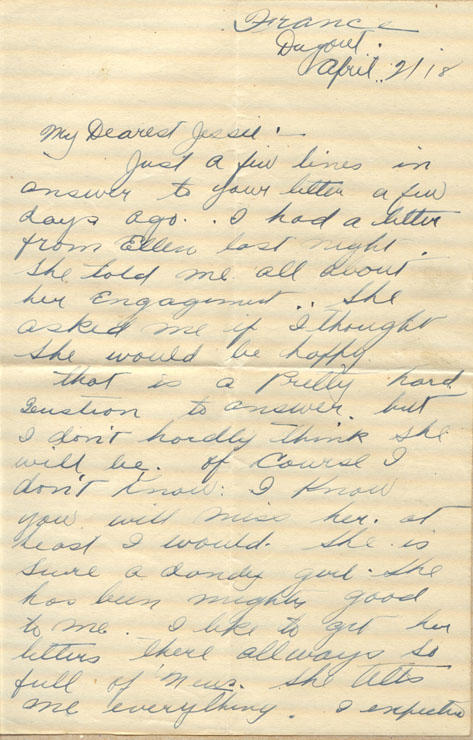 France
Dugout.
April. 2/18
My Dearest Jessie:-
Just a few lines in
answer to your letter a few
days ago. . I had a letter
from Ellen last night.
She told me all about
her Engagement .. She
asked me if I thought
she would be happy.
that is a Pretty hard
Qustion to answer. but
I don't hardly think she
will be. of Course I
don't Know. I Know
you will miss her. at
least I would. She is
Sure a dandy girl. She
has been mighty good
to me. I like to get her
letters there allways so
full of News. She tells
me everything. I expected